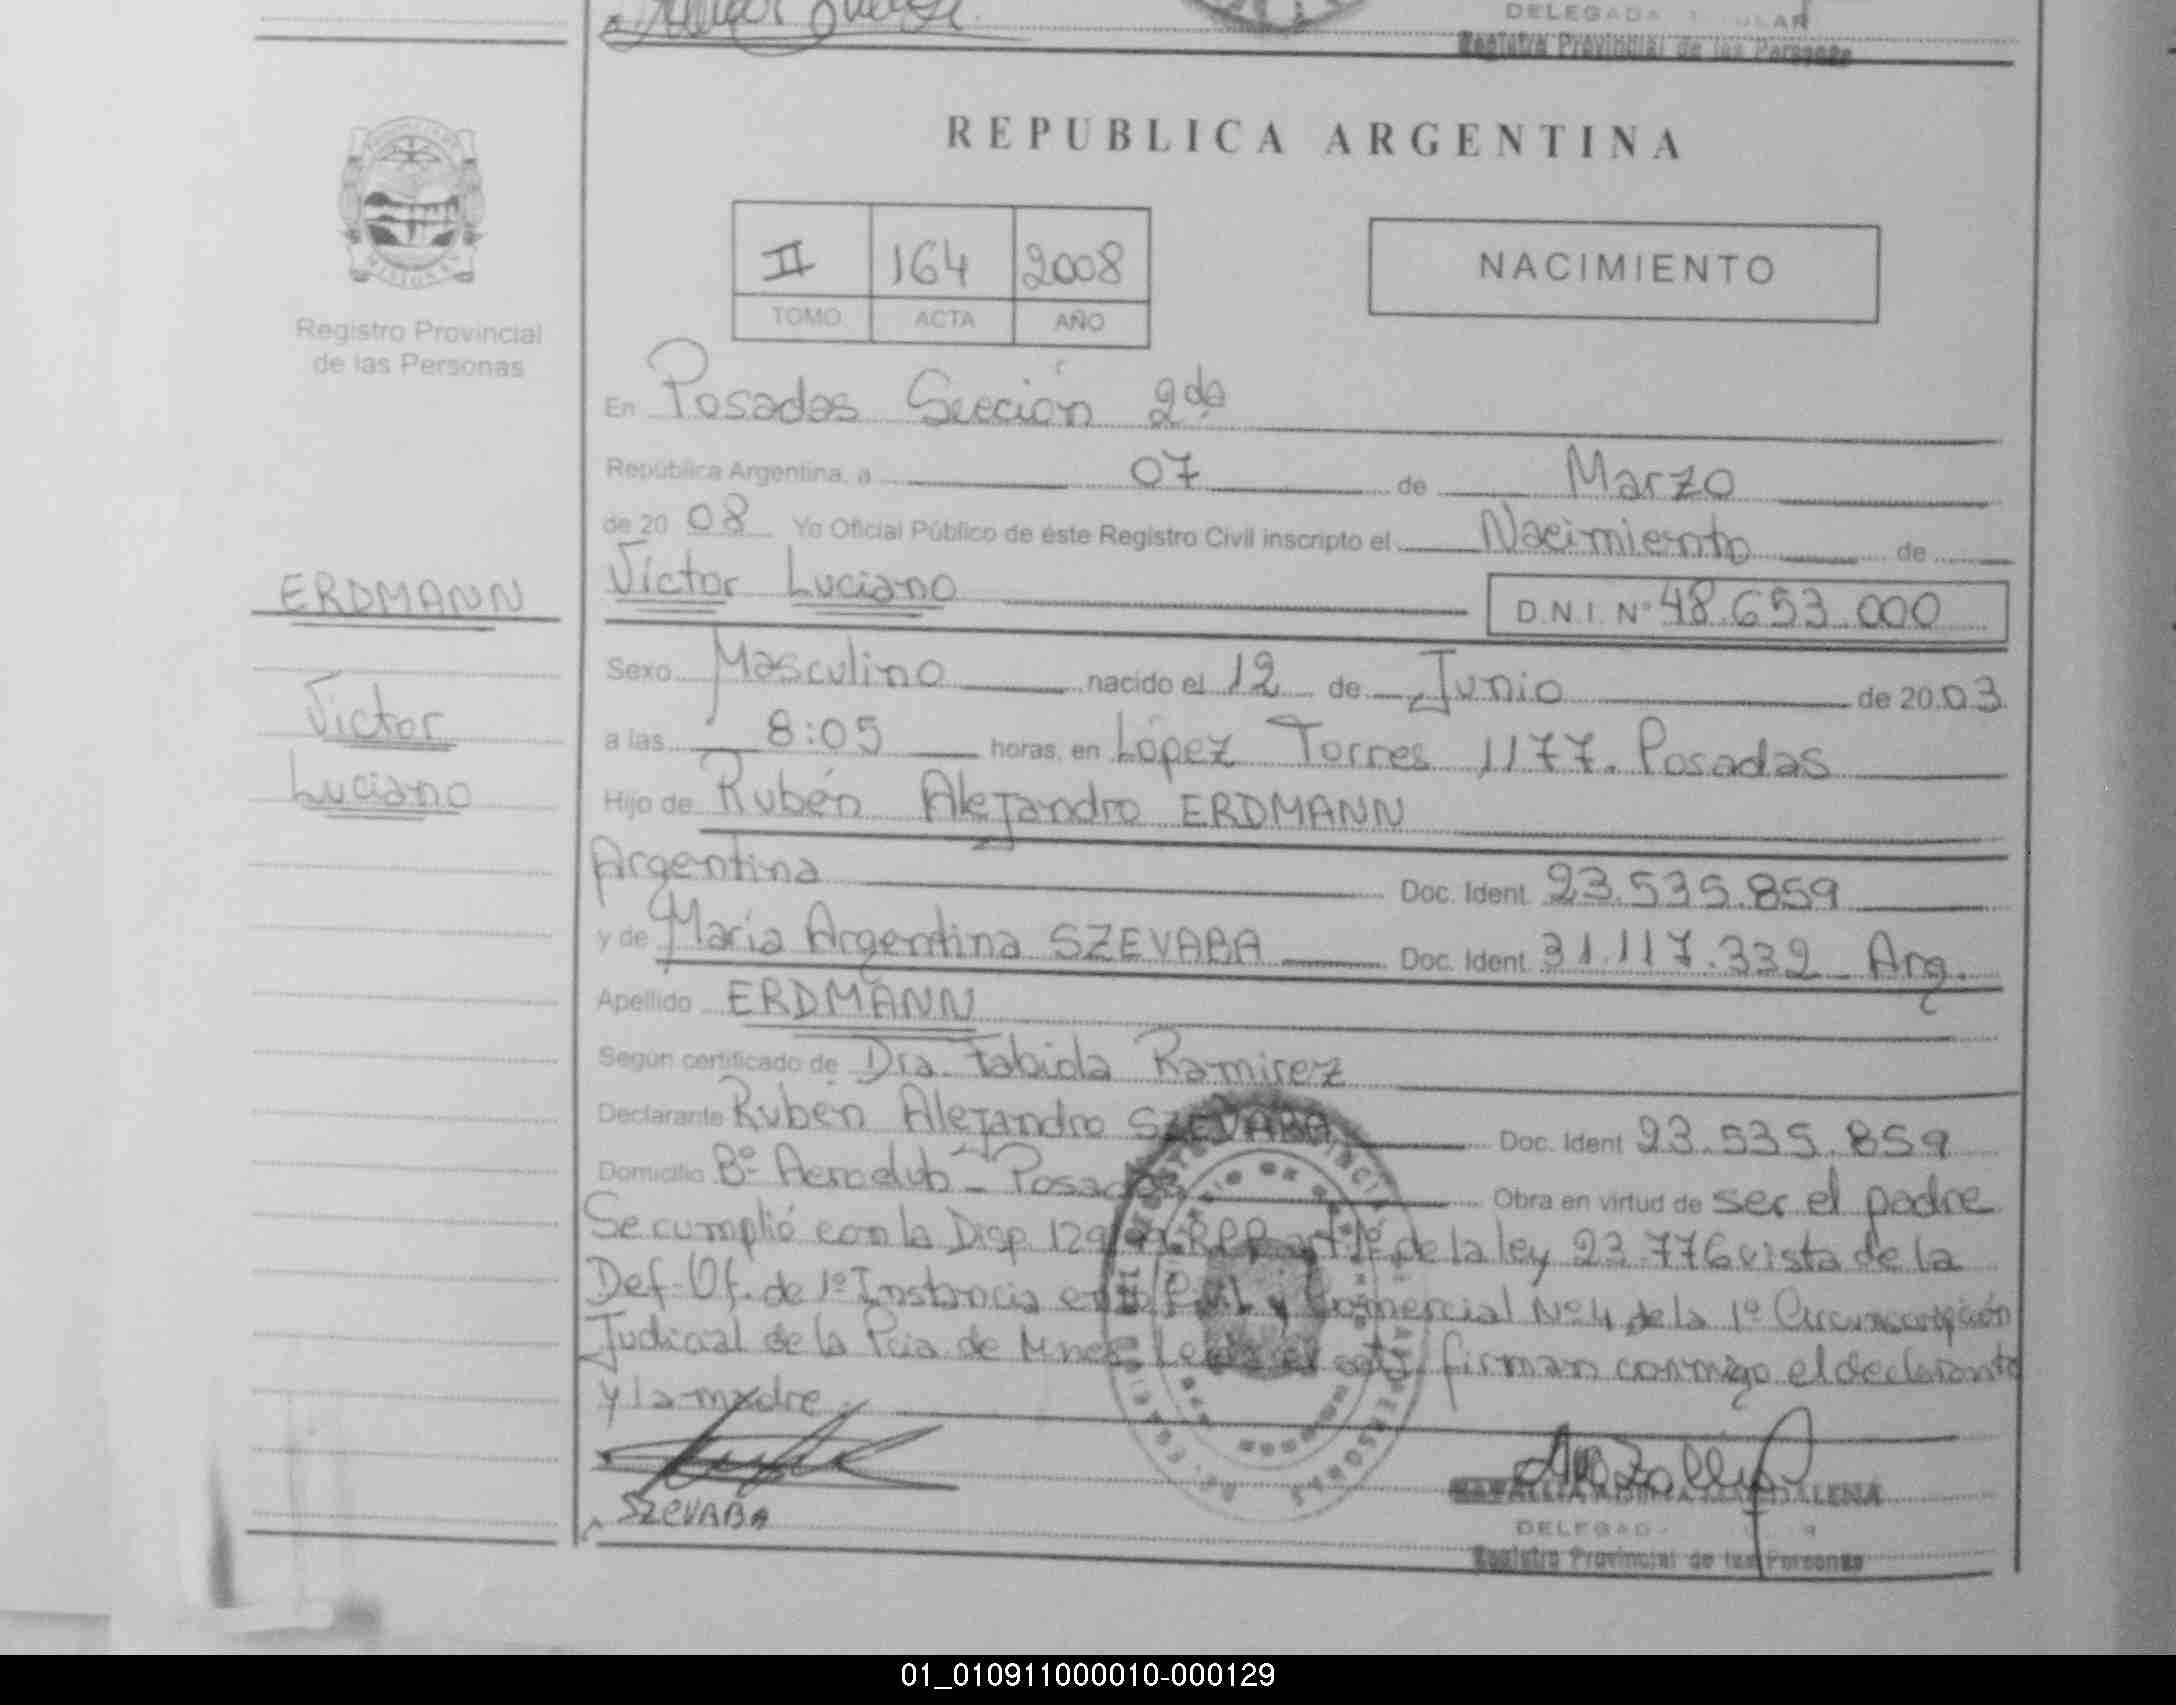 DELEGADA TITULAR
Registro Provincial de las Personas
REPUBLICA ARGENTINA
MISIONES
Registro Provincial
de las Personas
II 164 2008
TOMO ACTA AÑO
NACIMIENTO
En Posadas Sección 2da
República Argentina, a 07 de Marzo
de 20 08 Yo Oficial Público de éste Registro Civil inscripto el Nacimiento de
Víctor Luciano D.N.I. Nº 48.653.000
ERDMANN
Víctor
Luciano
Sexo Masculino nacido el 12 de Junio de 20 03
a las 8:05 horas, en López Torres 1177. Posadas
Hijo de Rubén Alejandro ERDMANN
Argentina Doc. Ident. 23.535.859
y de María Argentina SZEVABA Doc. Ident. 31.117.332 - Arg.
Apellido ERDMANN
Según certificado de Dra. Fabiola Ramirez
Declarante Rubén Alejandro SZEVABA Doc. Ident. 23.535.859
Domicilio Bº Aeroclub - Posadas Obra en virtud de ser el padre
Se cumplió con la Disp. 129/ RPP art 1º de la ley 23.776 vista de la
Def. Of. de 1º Instancia en lo Civil y Comercial Nº 4 de la 1º Circunscripción
Judicial de la Pcia de Mnes. Leída el acta firman conmigo el declarante
y la madre.
SZEVABA
DELEGADA
Registro Provincial de las Personas
01_010911000010-000129